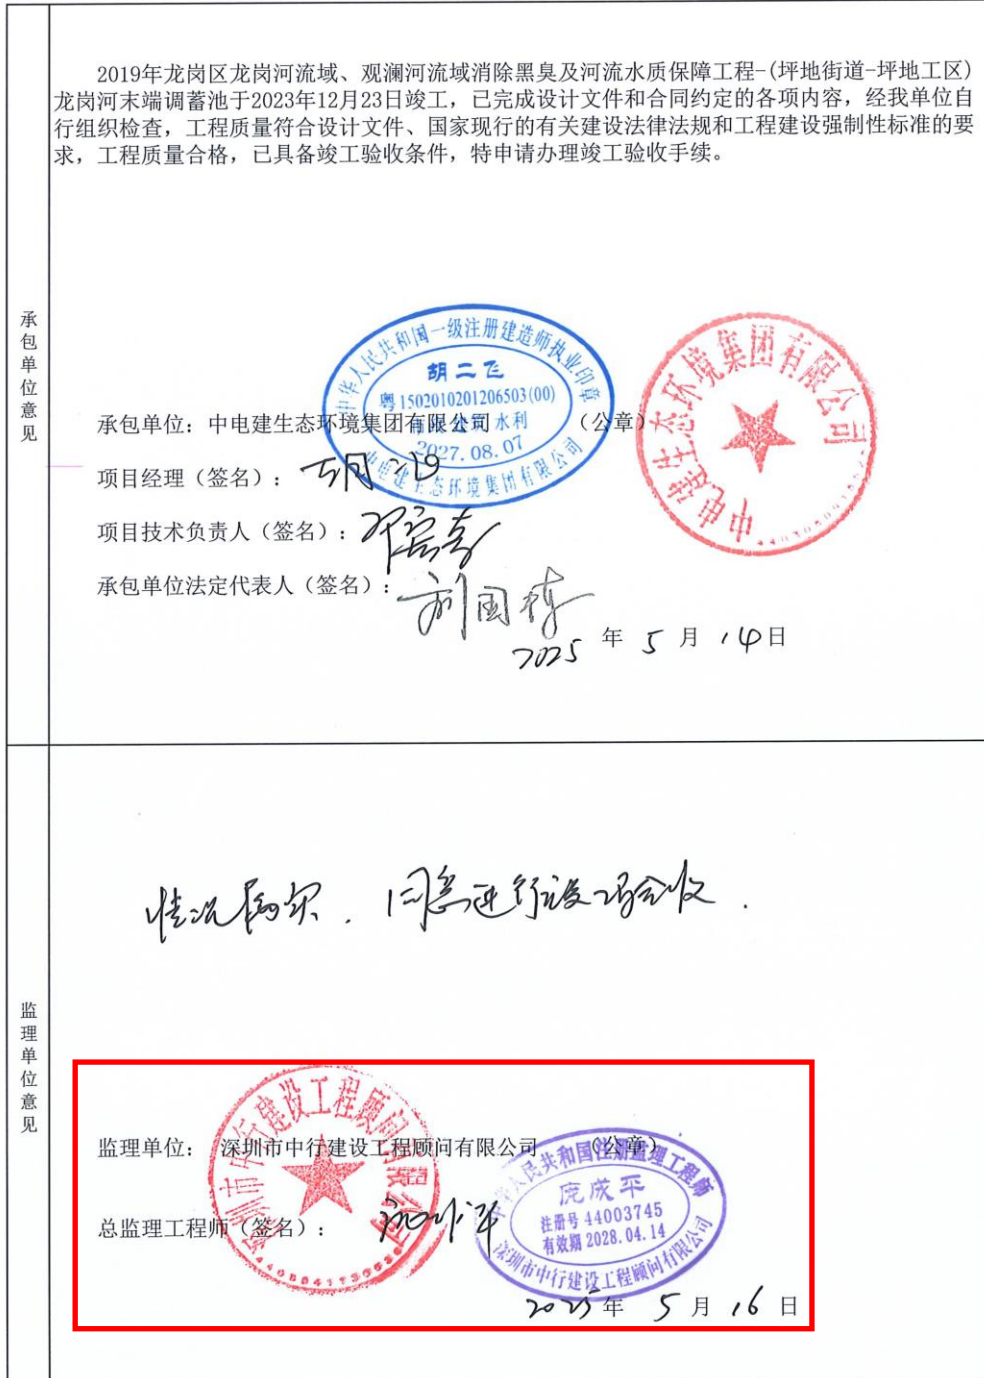 2019年龙岗区龙岗河流域、观澜河流域消除黑臭及河流水质保障工程-(坪地街道-坪地工区)
龙岗河末端调蓄池于2023年12月23日竣工，已完成设计文件和合同约定的各项内容，经我单位自
行组织检查，工程质量符合设计文件、国家现行的有关建设法律法规和工程建设强制性标准的要
求，工程质量合格，已具备竣工验收条件，特申请办理竣工验收手续。
承包单位意见
中华人民共和国一级注册建造师执业印章
胡二飞
粤1502010201206503(00)
水利
2027.08.07
中电建生态环境集团有限公司
中电建生态环境集团有限公司
承包单位：中电建生态环境集团有限公司（公章）
项目经理（签名）：
项目技术负责人（签名）：
承包单位法定代表人（签名）：刘国栋
2025年5月14日
情况属实．同意进行竣工验收．
监理单位意见
深圳市中行建设工程顾问有限公司
监理单位：深圳市中行建设工程顾问有限公司（公章）
中华人民共和国注册监理工程师
庞成平
注册号 44003745
有效期 2028.04.14
深圳市中行建设工程顾问有限公司
总监理工程师（签名）：
2025年5月16日